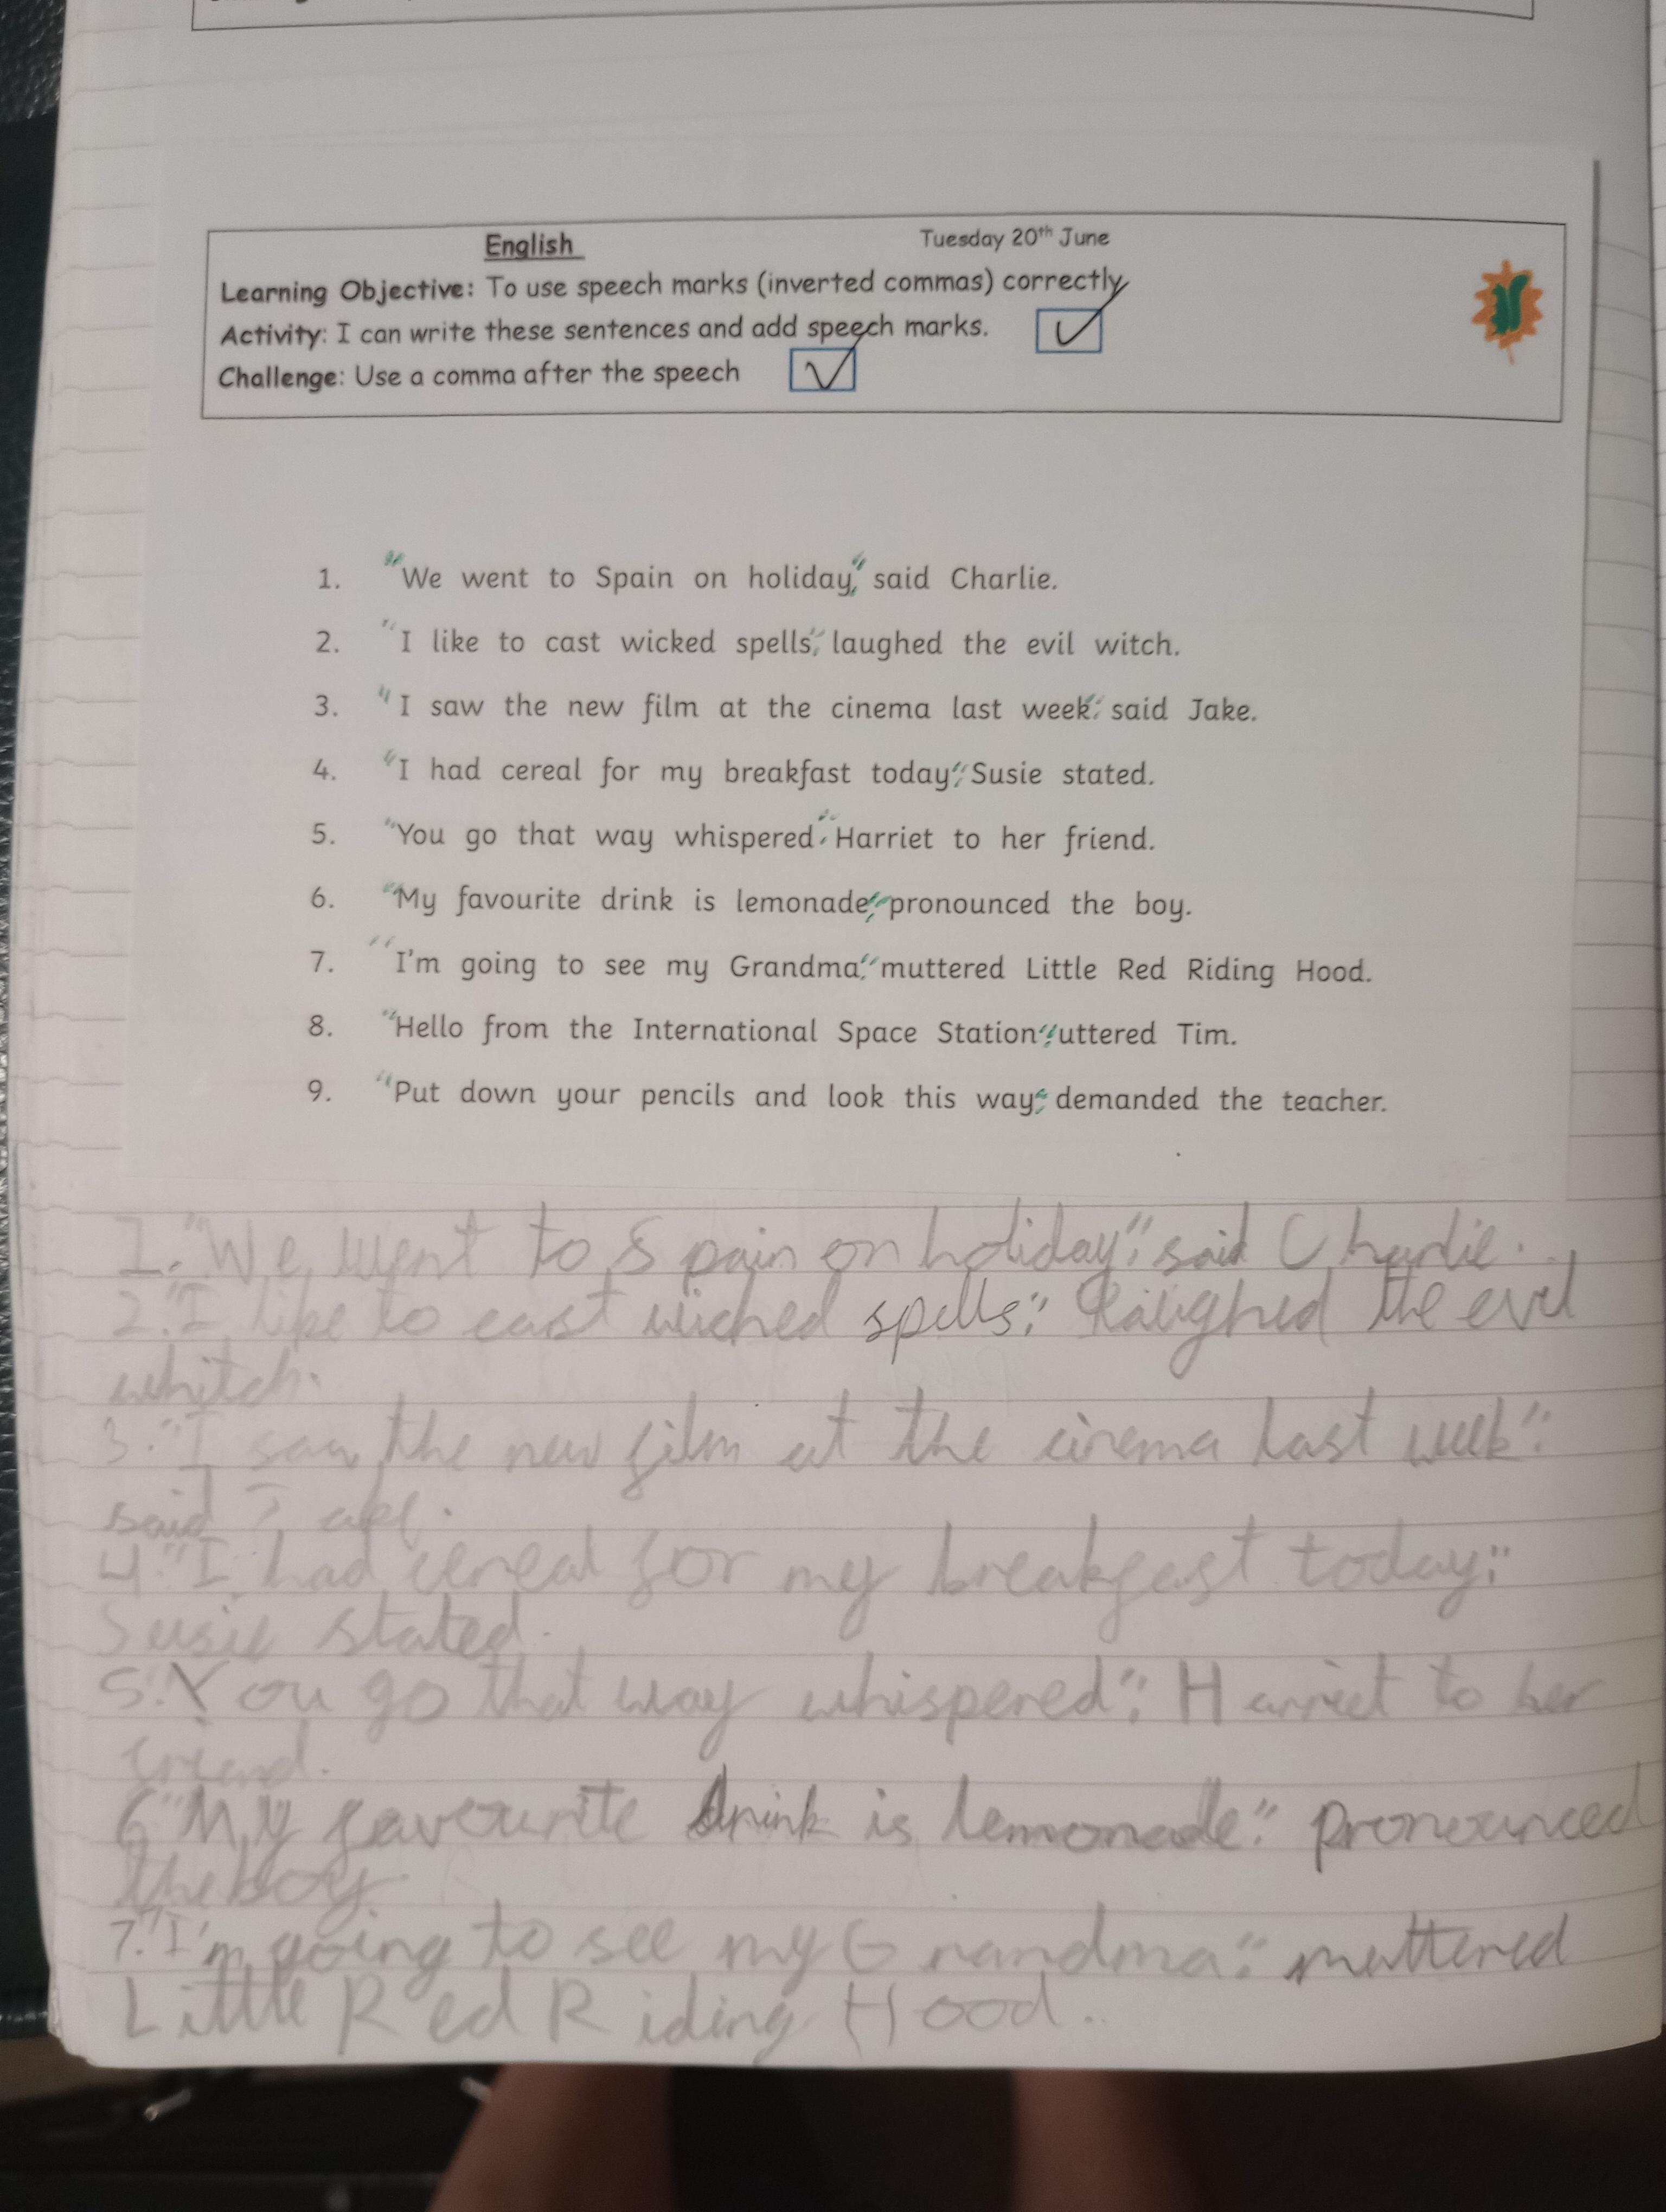 English Tuesday 20th June
Learning Objective: To use speech marks (inverted commas) correctly
Activity: I can write these sentences and add speech marks.
Challenge: Use a comma after the speech
1. "We went to Spain on holiday," said Charlie.
2. "I like to cast wicked spells," laughed the evil witch.
3. "I saw the new film at the cinema last week", said Jake.
4. "I had cereal for my breakfast today", Susie stated.
5. "You go that way whispered", Harriet to her friend.
6. "My favourite drink is lemonade," pronounced the boy.
7. "I'm going to see my Grandma," muttered Little Red Riding Hood.
8. "Hello from the International Space Station", uttered Tim.
9. "Put down your pencils and look this way", demanded the teacher.
1. "We went to Spain on holiday", said Charlie.
2. "I like to cast wicked spells," laughed the evil
whitch.
3. "I saw the new film at the cinema last week",
said Jake.
4. "I had cereal for my breakfast today,"
Susie stated.
5. "You go that way whispered", Harriet to her
friend.
6 "My favourite drink is lemonade," pronounced
the boy
7. "I'm going to see my Grandma," muttered
Little Red Riding Hood.